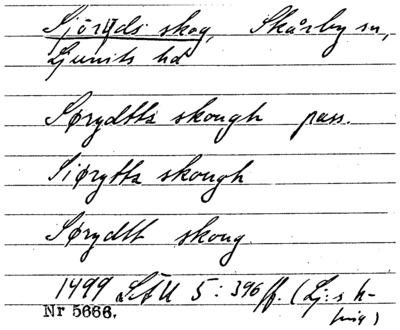 Sjöryds skog, Skårby sn,
Ljunits hd
Sørydtta skough pass.
Siørytta skough
Sørydtt skoug
1499 LÄU 5: 396 ff. (Lj:s h-
Nr 5666.